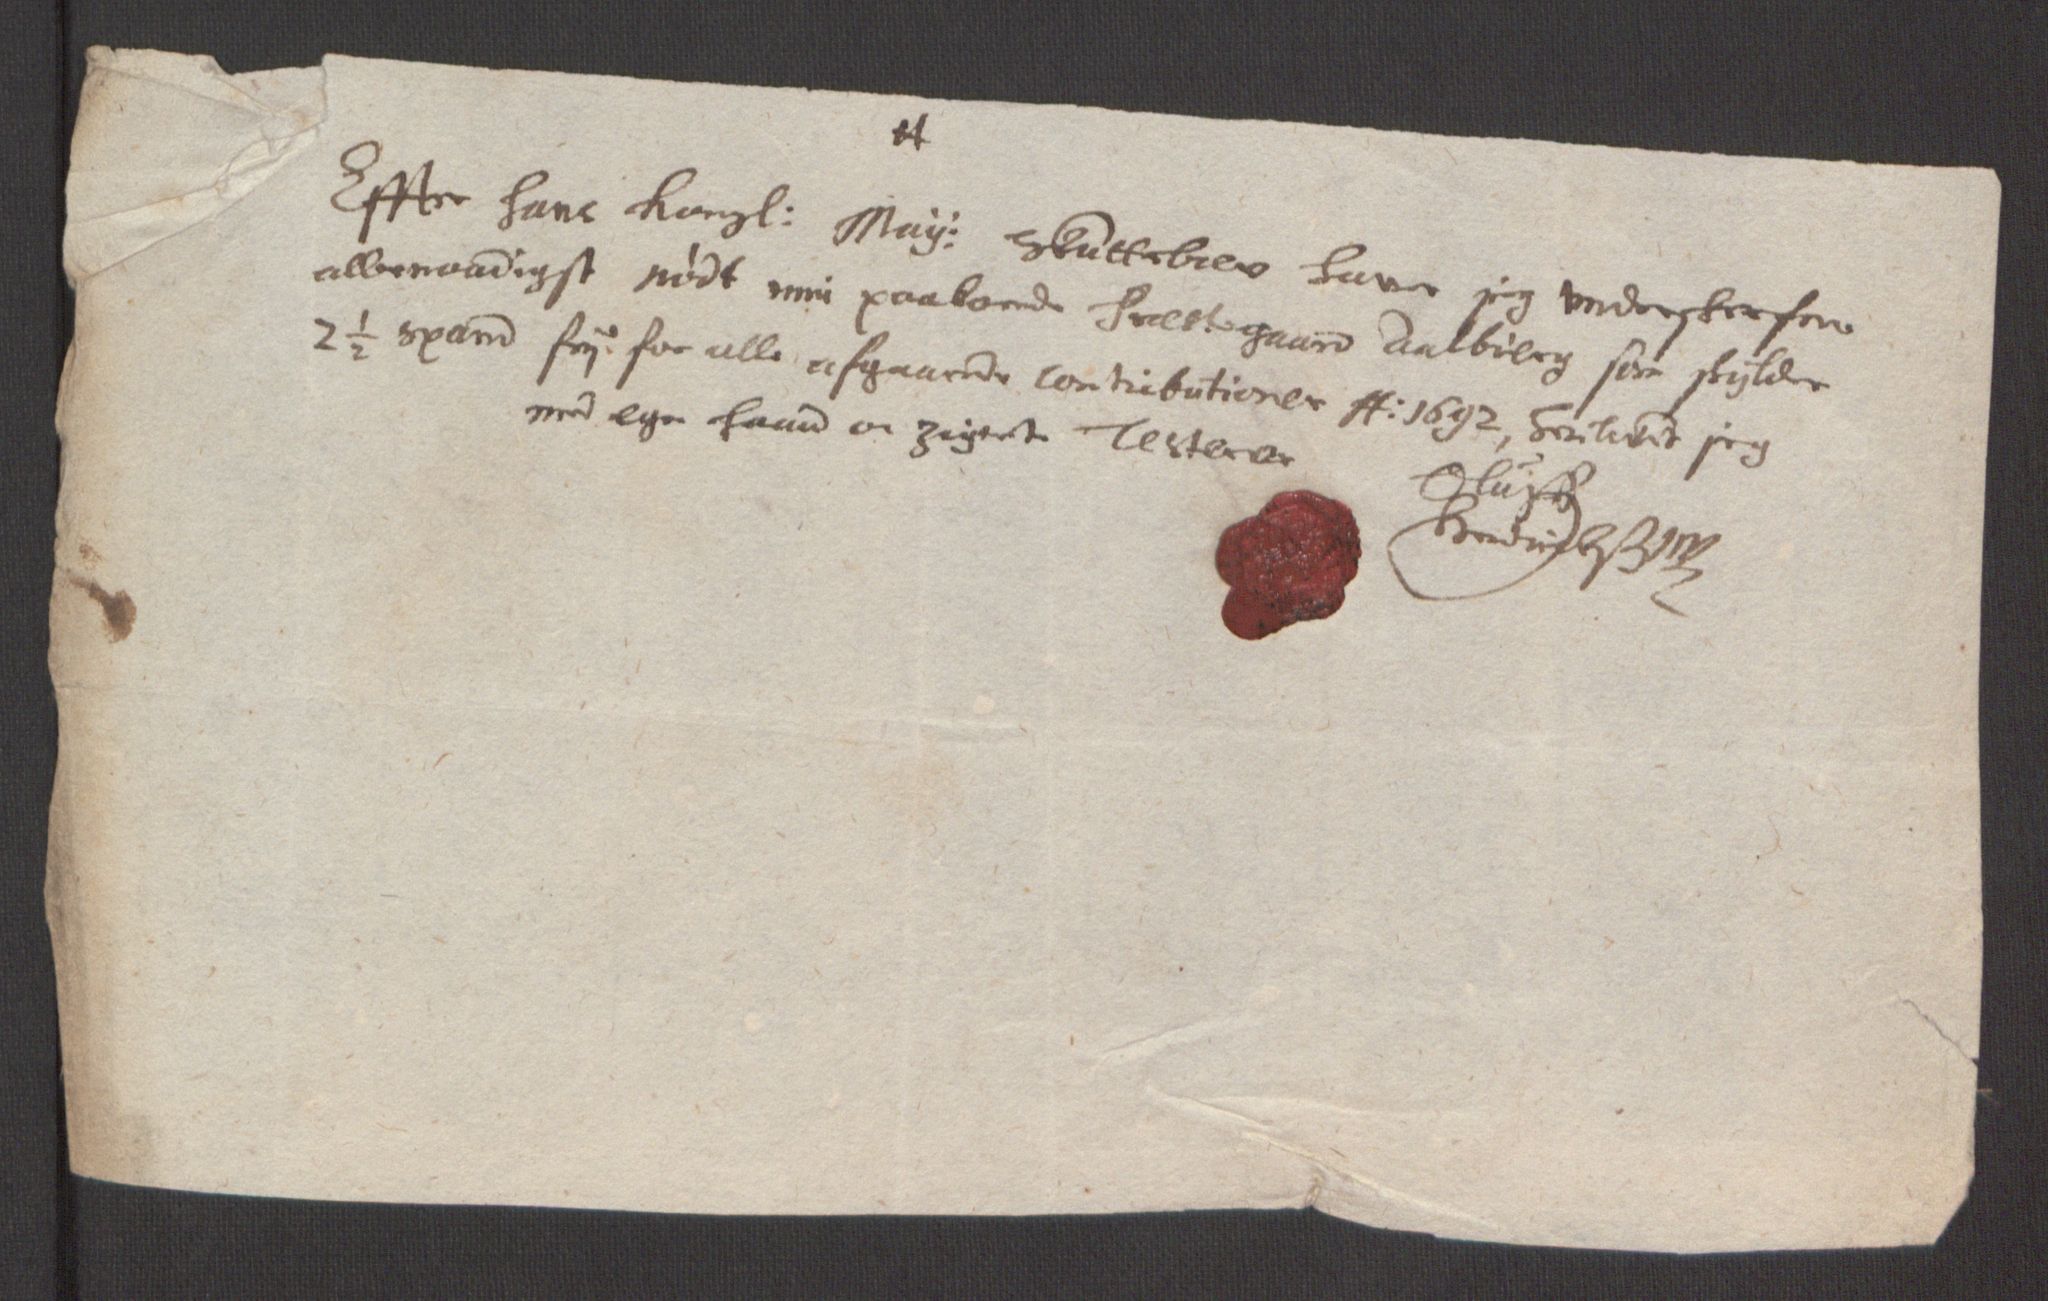 Effter hans Kongl: May: Skattebrev haver jeg underskrefne
allernaadigst nødt min paaboende Prestegaard Aalbierg som skylder
2 1/2 spand frij for alle afgaaende Contributioner pp: 1692, Hvilcket jeg
med egen haand oc Zignete Testerer
Oluff